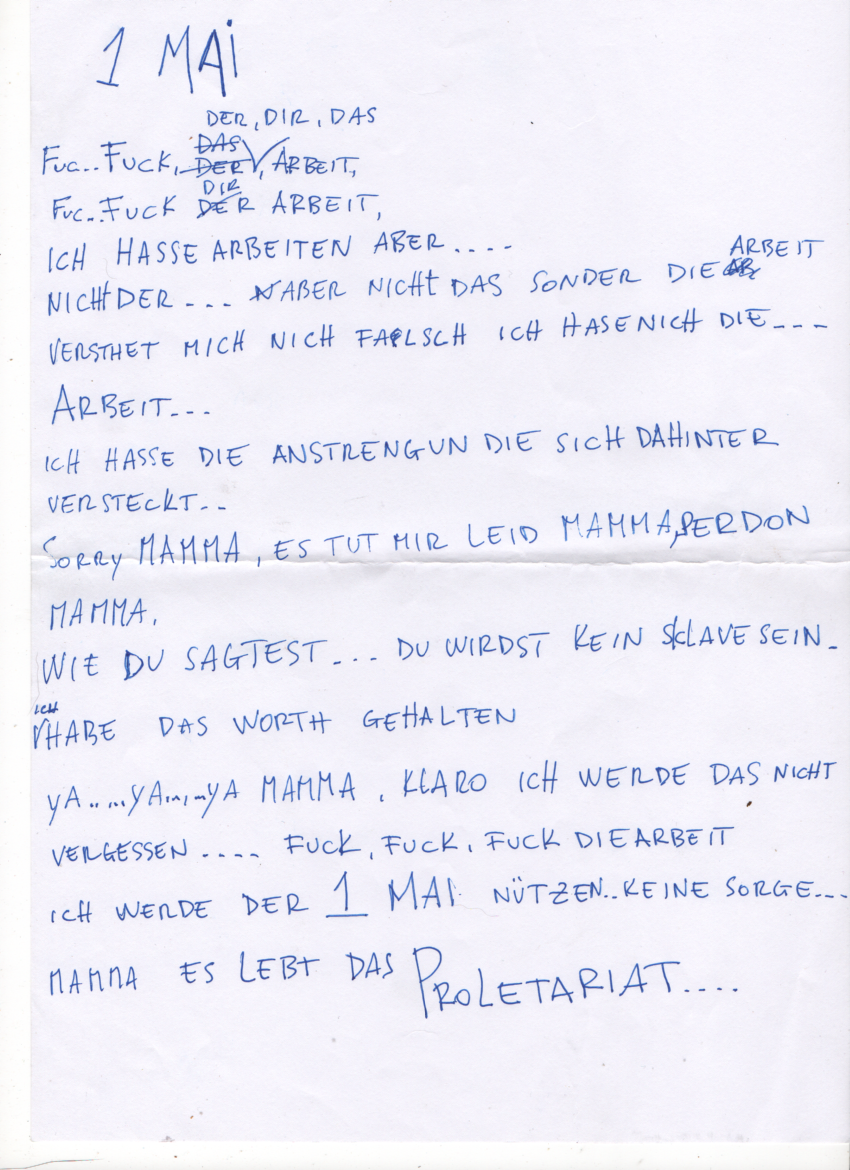 1 MAI
DER, DIR, DAS
DAS
FUC.. FUCK, DER V, ARBEIT,
DIR
FUC.. FUCK DER ARBEIT,
ICH HASSE ARBEITEN ABER....
ARBEIT
NICHT DER --- ABER NICHT DAS SONDER DIE
VERSTHET MICH NICH FALSCH ICH HASE NICH DIE ---
ARBEIT---
ICH HASSE DIE ANSTRENGUN DIE SICH DAHINTER
VERSTECKT--
SORRY MAMMA, ES TUT MIR LEID MAMMA, PERDON
MAMMA.
WIE DU SAGTEST--- DU WIRDST KEIN SKLAVE SEIN-
ICH
HABE DAS WORTH GEHALTEN
YA.....YA.....YA MAMMA, KLARO ICH WERDE DAS NICHT
VERGESSEN---- FUCK, FUCK, FUCK DIE ARBEIT
ICH WERDE DER 1 MAI NÜTZEN.. KEINE SORGE---
MAMMA ES LEBT DAS PROLETARIAT....